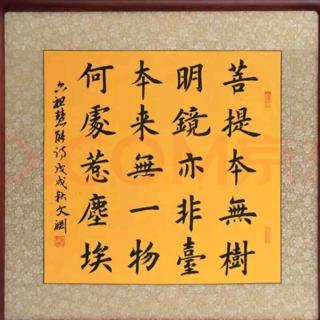 菩提本無樹
明鏡亦非臺
本来無一物
何處惹塵埃
六祖慧能詩戊戌秋文瀾